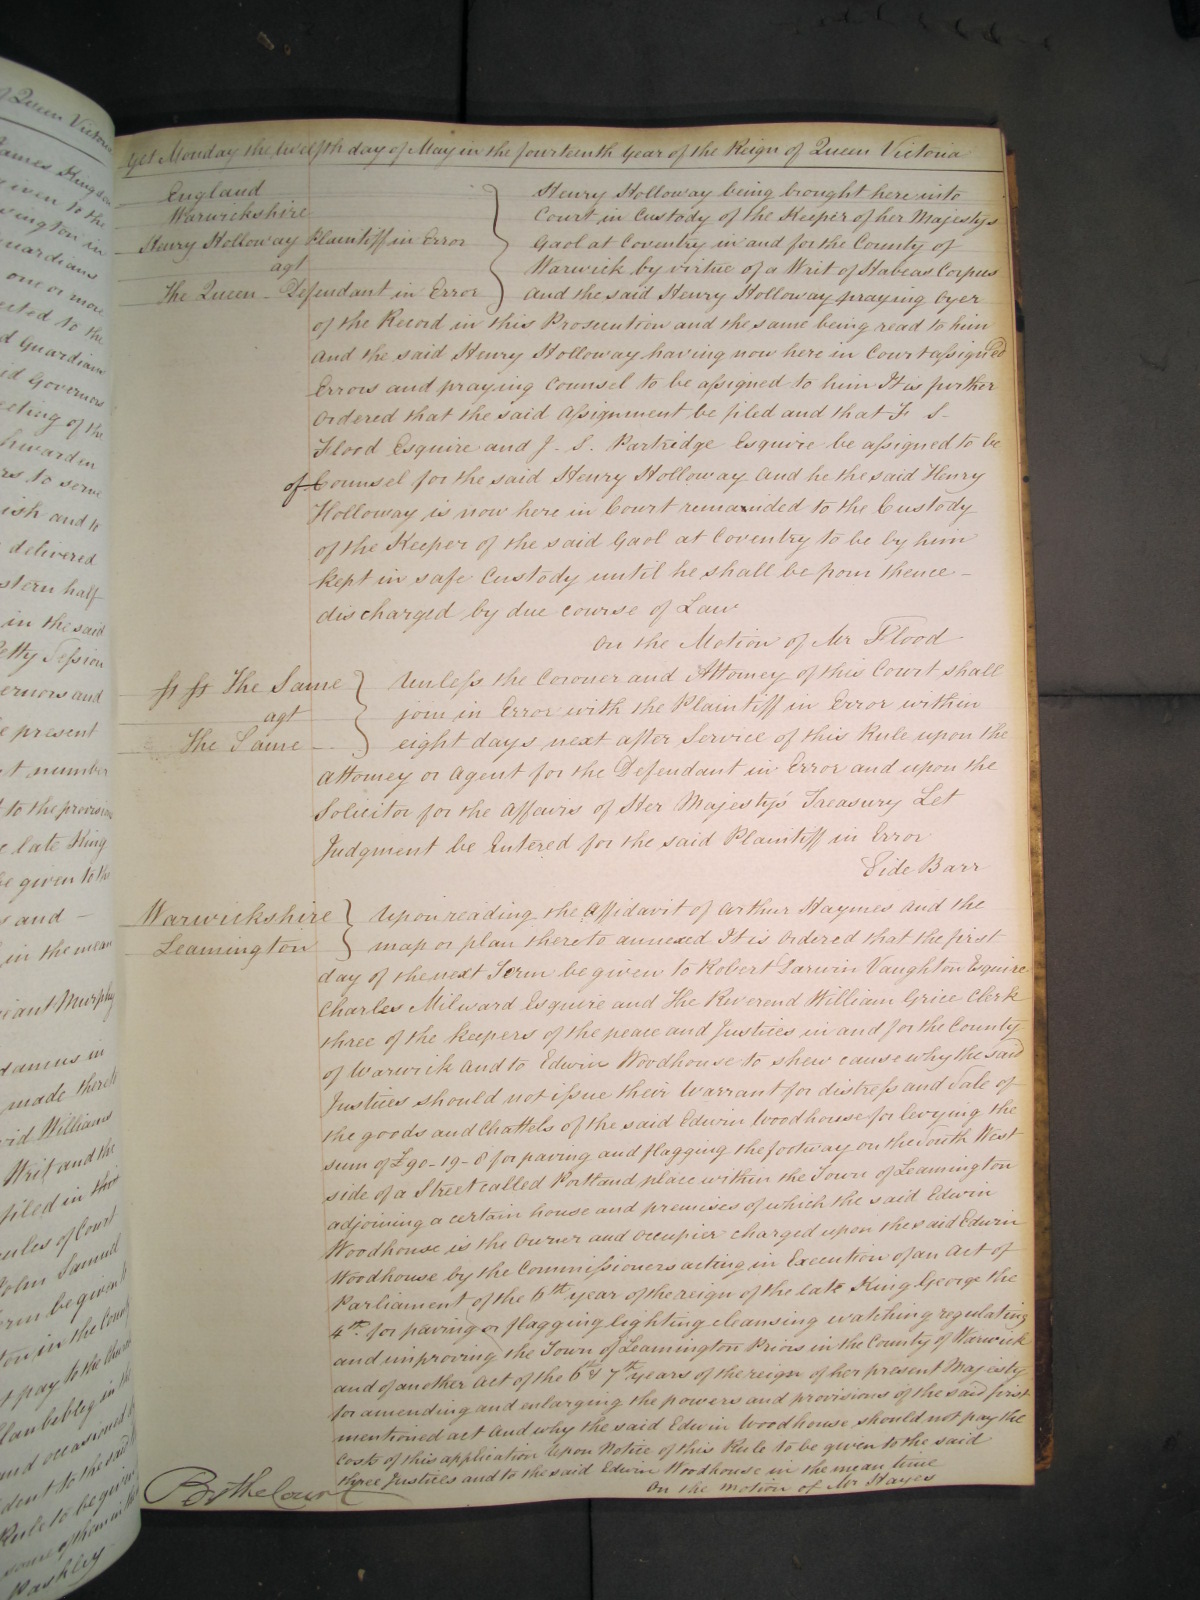 of Queen Victoria
James Kingdon
given to the
ington in
Guardians
one or more
ected to the
d Guardian
id Governors
eeting of the
hwarden
rs to serve
ish and to
delivered
stern half
in the said
Petty Session
ernors and
e present
t number
t to the provisions
e late King
be given to the
s and -
in the mean
eant Murphy
damus in
made thereto
vid Williams
Writ and the
filed in this
rules of Court
John Samuel
orm be given to
ton in the County
pay to the
and occasioned
dent to the said
Rule to be given
some of them in the
Pashley
Yet Monday the twelfth day of May in the fourteenth Year of the Reign of Queen Victoria
England
Warwickshire
Henry Holloway Plaintiff in Error
agt
The Queen - Defendant in Error
Henry Holloway being brought here into
Court in Custody of the Keeper of her Majestys
Gaol at Coventry in and for the County of
Warwick by virtue of a Writ of Habeas Corpus
And the said Henry Holloway praying Oyer
of the Record in this Prosecution and the same being read to him
And the said Henry Holloway having now here in Court assigned
Errors and praying Counsel to be assigned to him It is further
Ordered that the said Assignment be filed and that F S -
Flood Esquire and J. S. Partridge Esquire be assigned to be
of Counsel for the said Henry Holloway And he the said Henry
Holloway is now here in Court remanded to the Custody
of the Keeper of the said Gaol at Coventry to be by him
kept in safe Custody until he shall be from thence -
discharged by due course of Law
On the Motion of Mr Flood
The Same
agt
The Same -
Unless the Coroner and Attorney of this Court shall
join in Error with the Plaintiff in Error within
eight days next after Service of this Rule upon the
Attorney or Agent for the Defendant in Error and upon the
Solicitor for the Affairs of Her Majesty's Treasury Let
Judgment be Entered for the said Plaintiff in Error
Side Barr
Warwickshire
Leamington
Upon reading the Affidavit of Arthur Haymes and the
map or plan thereto annexed It is Ordered that the first
day of the next Term be given to Robert Darwin Vaughton Esquire
Charles Milward Esquire and The Reverend William Grice Clerk
three of the keepers of the peace and Justices in and for the County
of Warwick And to Edwin Woodhouse to shew cause why the said
Justices should not issue their Warrant for distress and Sale of
the goods and Chattels of the said Edwin Woodhouse for levying the
sum of £90-19-8 for paving and flagging the footway on the South West
side of a Street called Portland place within the Town of Leamington
adjoining a certain house and premises of which the said Edwin
Woodhouse is the Owner and Occupier charged upon the said Edwin
Woodhouse by the Commissioners acting in Execution of an Act of
Parliament of the 6th year of the reign of the late King George the
4th for paving or flagging lighting cleansing watching regulating
and improving the Town of Leamington Priors in the County of Warwick
and of another Act of the 6th & 7th years of the reign of her present Majesty
for amending and enlarging the powers and provisions of the said first
mentioned act And why the said Edwin Woodhouse should not pay the
costs of this application Upon Notice of this Rule to be given to the said
three Justices and to the said Edwin Woodhouse in the mean time
On the motion of Mr Hayes
By the Court